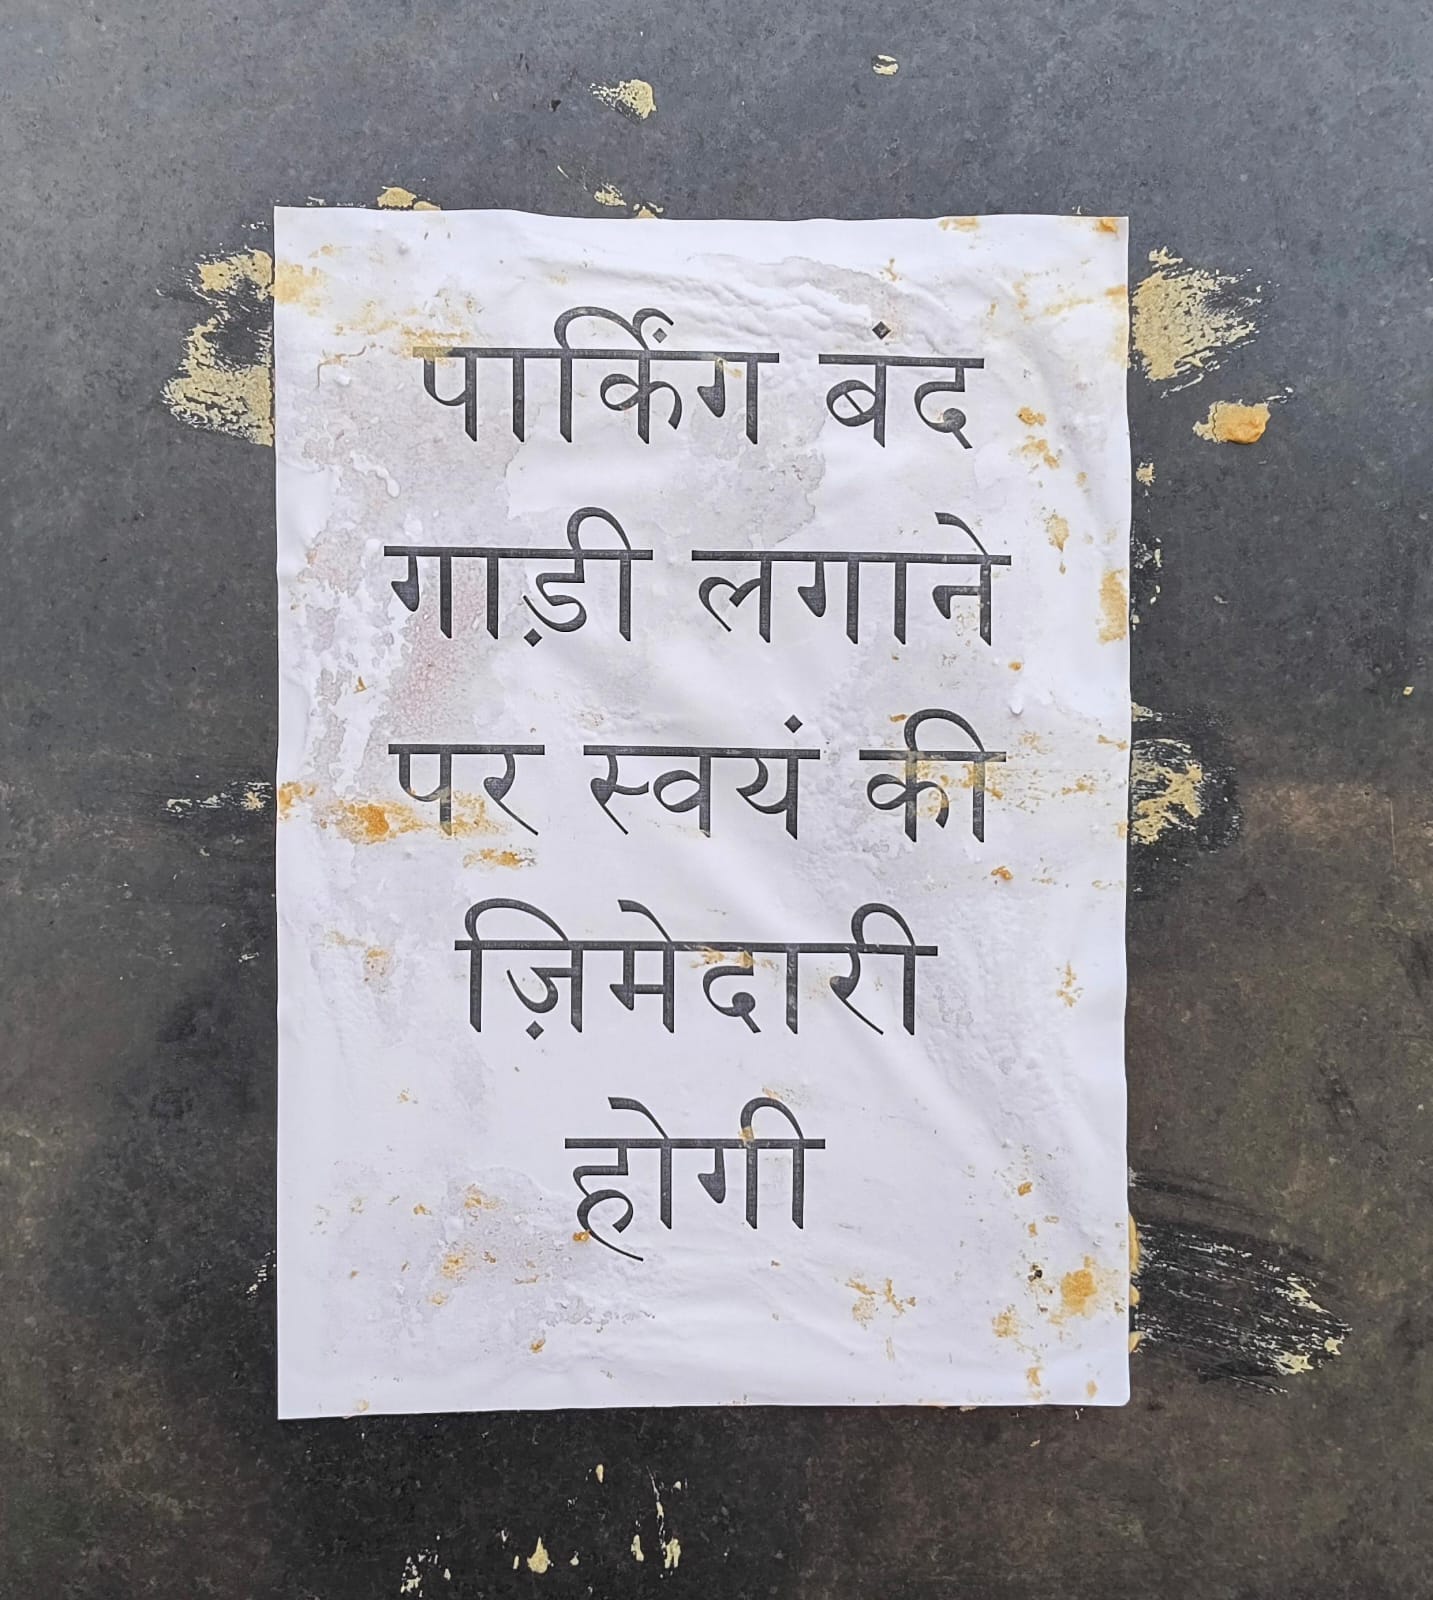 पार्किंग बंद
गाड़ी लगाने
पर स्वयं की
ज़िमेदारी
होगी